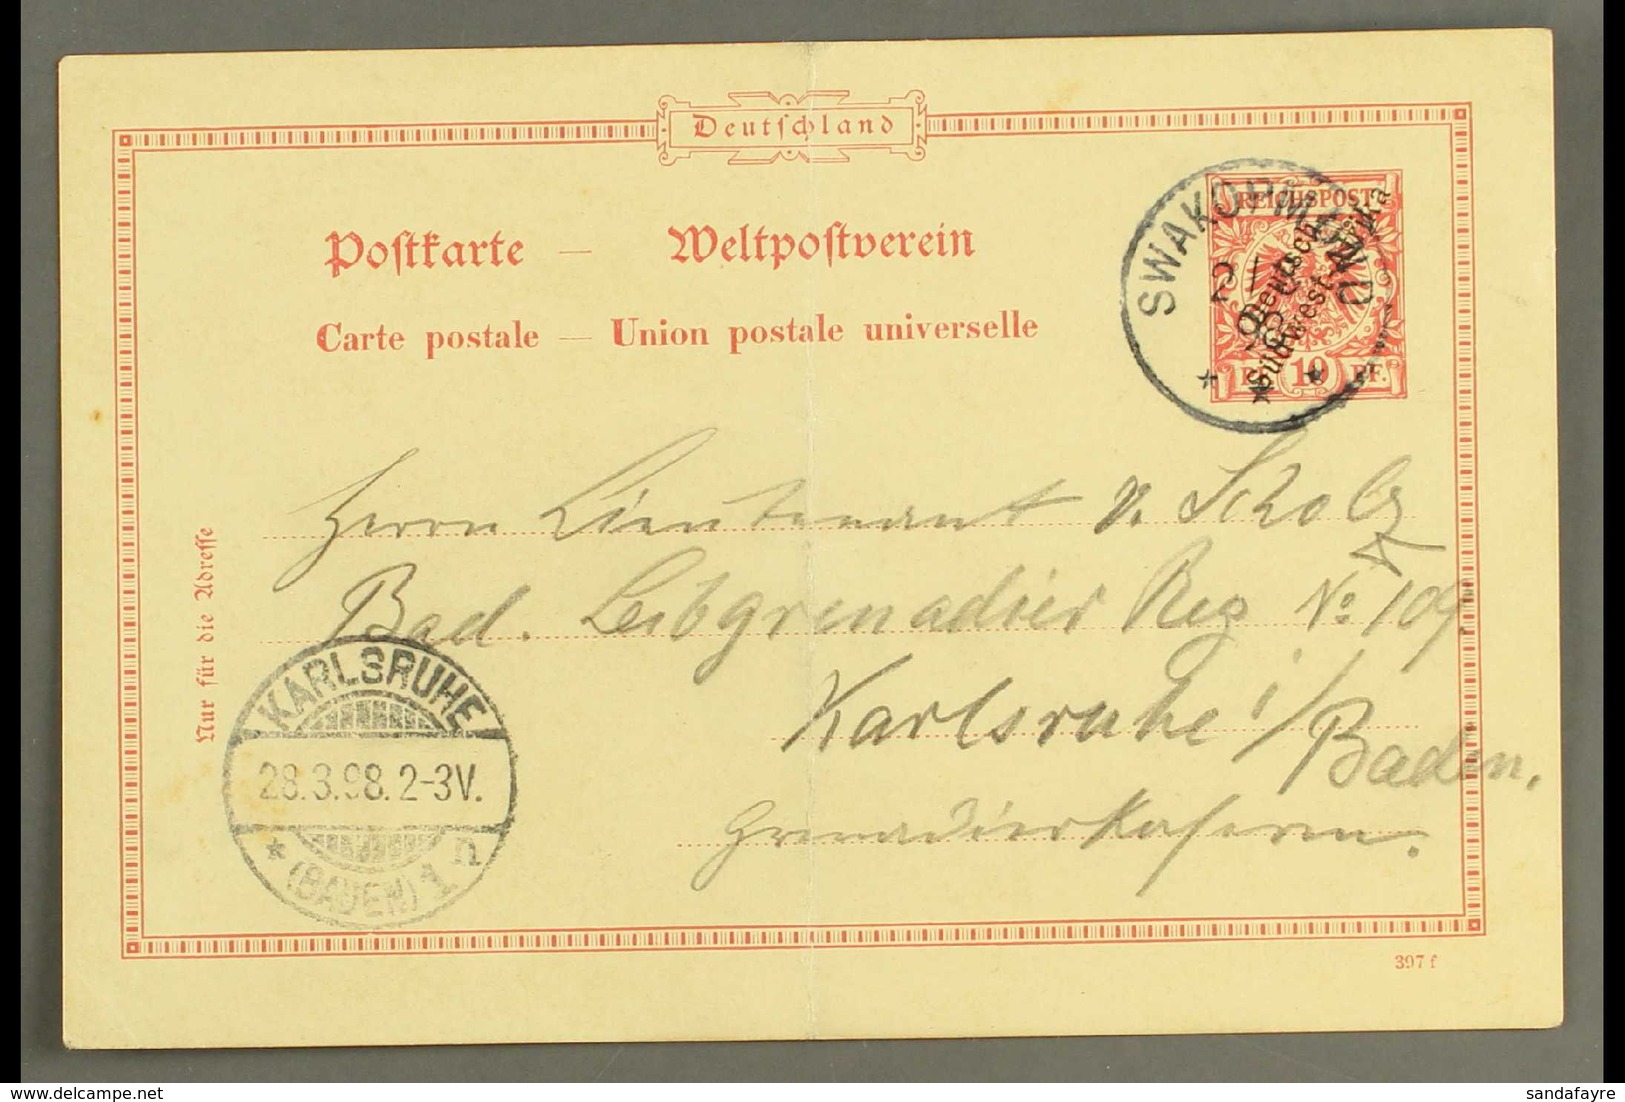 Deutſchland
Poſtkarte — Weltpoſtverein
Carte postale — Union postale universelle
REICHSPOST
Deutsch-
Südwest-Afrika
10 PF.
SWAKOPMUND
2
98
Herrn Lieutenant v. Scholz
Bad. Leibgrenadier Reg No 109
Karlsruhe i/Baden.
Grenadierkaserne.
Nur für die Adreſſe
KARLSRUHE
28.3.98.2-3V.
* (BADEN) 1 n
397 f
delcampe.net
sandafayre